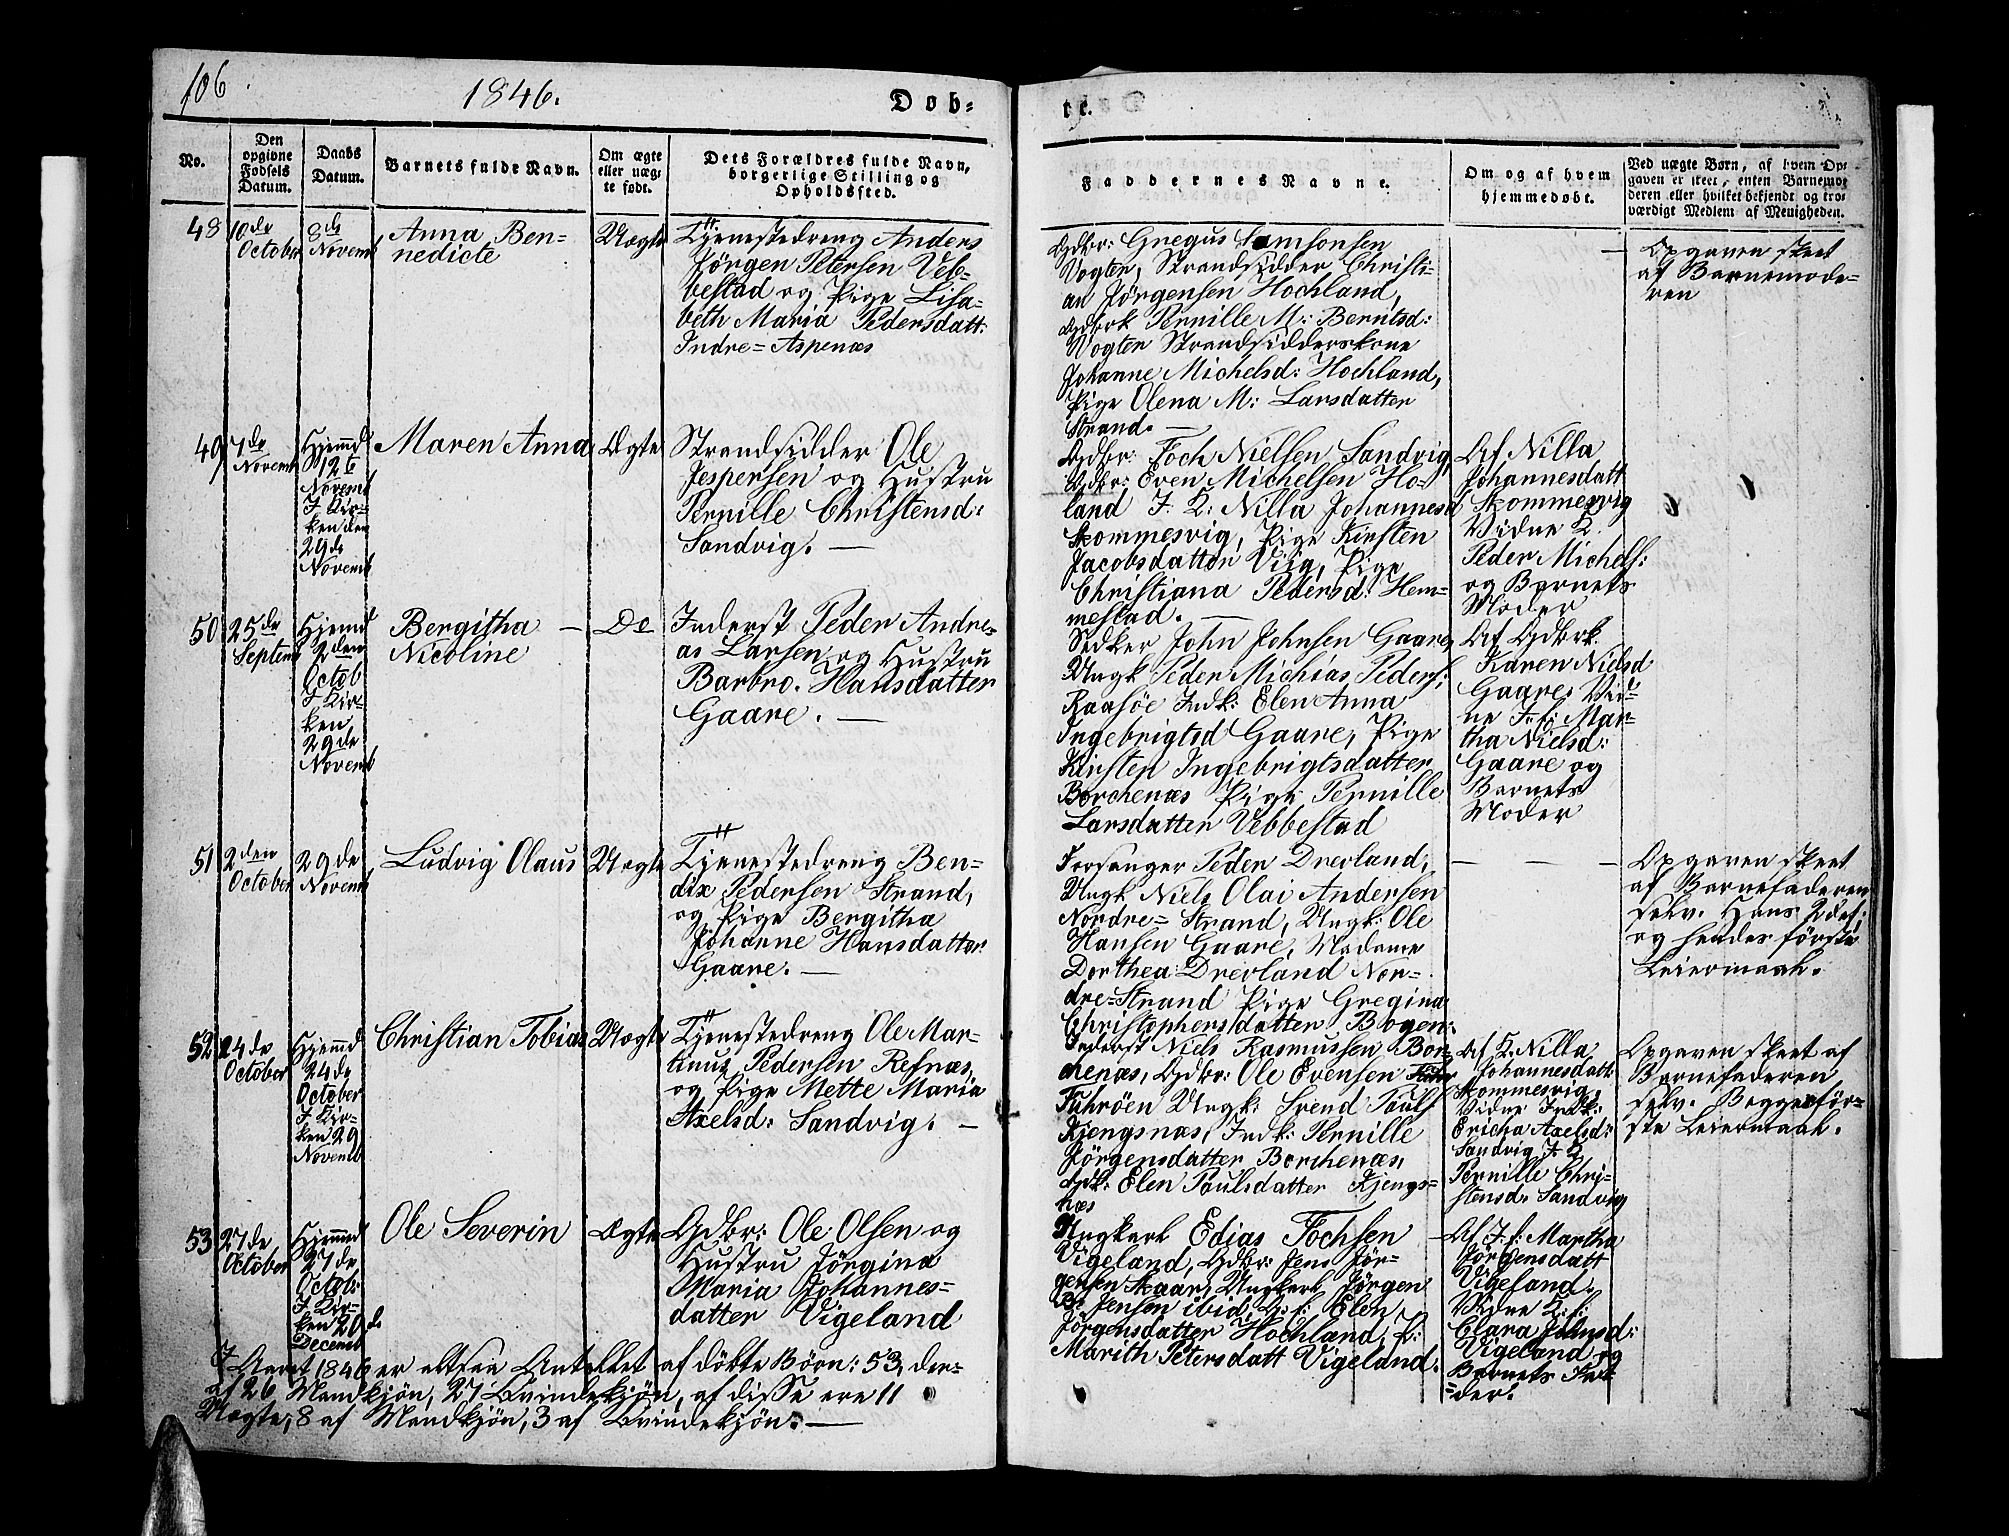 106
1846.
Døb-
te.
No.
Den
opgivne
Fødsels
Datum.
Daabs
Datum.
Barnets fulde Navn.
Om ægte
eller uæg-
te født.
Dets Forældres fulde Navn,
borgerlige Stilling og
Opholdssted.
Faddernes Navne.
Om og af hvem
hjemmedøbt.
Ved uægte Børn, af hvem Op-
gaven er skeet, enten Barnemo-
deren eller hvilket bekjendt og tro-
værdigt Medlem af Menigheden.
48
10de
October
8de
Novemb
Anna Ben-
nedicte
Uægte
Tjenestedreng Anders
Jörgen Petersen Veb-
bestad og Pige Lisa-
beth Maria Pedersdatt:
Indre=Aspenæs
Gdbr: Gregus Samsonsen
Vogten, Strandsidder Christi-
an Jörgensen Hochland,
Gdbrk Pernille M: Berntsd:
Vogten Strandsidderskone
Johanne Michelsd: Hochland,
Pige Olena M: Larsdatter
Strand. —
Opgaven skeet
af Barnemode-
ren
49
7de
Novemb
Hjemmd
12te
Novemb
I Kir-
ken den
29de
Novemb
Maren Anna
Ægte
Strandsidder Ole
Jespersen og Hustru
Pernille Christensd:
Sandvig. —
Gdbr: Foch Nielsen Sandvig,
Gdbr: Even Michelsen Ho-
land I. K: Nilla Johannesd
Skommesvig, Pige Kirsten
Jacobsdatter Viig, Pige
Christiana Pedersd: Hem-
mestad. —
Af Nilla
Johannesdatt
Skommesvig
Vidne K.
Peder Michels:
og Barnets
Moder
50
25de
Septemb
Hjemd
2den
Octob
I Kir-
ken
29de
Novemb
Bergitha —
Nicoline
Do
Inderst Peder Andre-
as Larsen og Hustru
Barbro. Hansdatter
Gaare. —
Sedker John Johnsen Gaare,
Ungk Peder Michias Peders:
Raasöe Indk: Elen Anna
Ingebrigtsd Gaare, Pige
Kirsten Ingebrigtsdatter
Borchenæs Pige Pernille
Larsdatter Vebbestad
Af Gdbrk
Karen Nielsd
Gaare. Vid-
ne I. f: Mar-
tha Nielsd:
Gaare og
Barnets
Moder
51
2den
October
29de
Novemb
Ludvig Olaus
Uægte
Tjenestedreng Ben-
dix Pedersen Strand,
og Pige Bergitha
Johanne Hansdatter
Gaare. —
Forsanger Peder Drevland,
Ungk Niels Olai Andersen
Nordre=Strand, Ungk: Ole
Hansen Gaare, Madame
Dorthea Drevland Nor-
dre=Strand Pige Gregina
Christophersdatter Bogen:
— — —
Opgaven skeet
af Barnefaderen
selv. Hans 2det
og hendes første
Leiermaal.
52
24de
October
Hjemmd
24de
October
I Kir-
ken 29
Novemb
Christian Tobias
Uægte
Tjenestedreng Ole Mar-
tinus Pedersen Refnæs,
og Pige Mette Maria
Axelsd: Sandvig. —
Inderst Niels Rasmussen Bor-
chenæs, Gdbr: Ole Evensen
Fuhröen Ungk: Svend Pouls
Kjengsnæs, Indk: Pernille
Jörgensdatter Borchenæs,
Gdk: Elen Poulsdatter Kjengs=
næs
Af K. Nilla
Johannesdatt
Skommesvig
Vidne Indk:
Ericha Axelsd:
Sandvig I. K
Pernille Chri-
stensd: Sandvig
Opgaven skeet af
Barnefaderen
selv. Begges för-
ste Leiermaal.
53
27de
October
Hjemmd
27de
Octob:
I Kir-
ken 20de
Decemb
Ole Severin
Ægte
Gdbr: Ole Olsen og
Hustru Jörgina
Maria Johannes-
datter Vigeland
Ungkarl Edias Fochsen
Vigeland, Gdbr: Jens Jör-
gensen Skaar, Ungkarl Jörgen
Jensen ibid, G. f: Elen
Jörgensdatter Hochland, K:
Marith Petersdatt Vigeland.
Af I. f: Martha
Jörgensdatt
Vigeland.
Vidne K. f:
Clara Johnsd:
Vigeland og
Barnets Fa-
der.
I Aaret 1846 er altsaa Antallet af döbte Börn: 53, der-
af 26 Mandkjön, 27 Qvindekjön, af disse ere 11
Uægte, 8 af Mandkjön, 3 af Qvindekjön. —